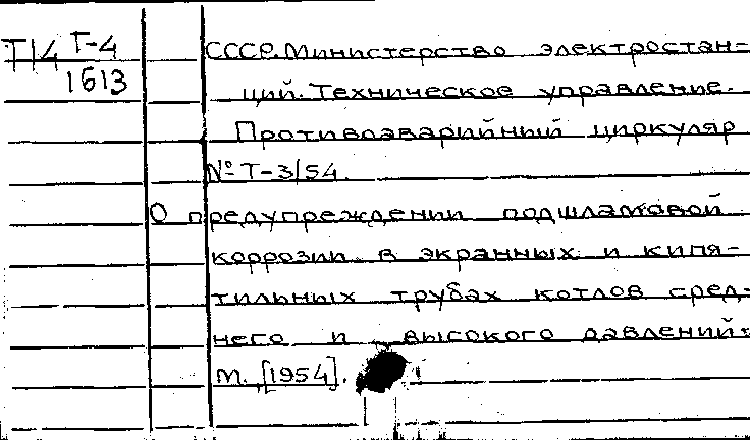 Т14 Т-4
1613
СССР. Министерство электростан-
ций. Техническое управление.
Противоаварийный циркуляр
№ Т-3/54.
О предупреждении подшламовой
коррозии в экранных и кипя-
тильных трубах котлов сред-
него и высокого давлений.
М., [1954].